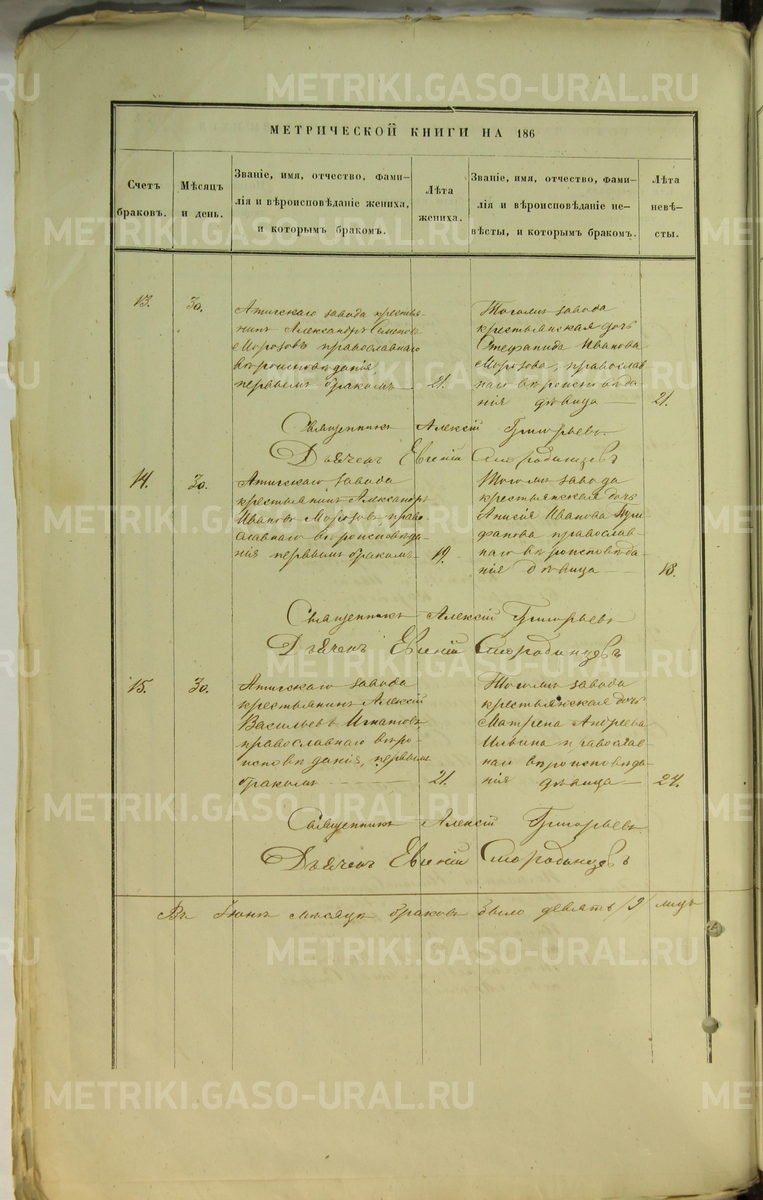 МЕТРИЧЕСКОЙ КНИГИ НА 186
Счетъ
браковъ.
Мѣсяцъ
и день.
Званіе, имя, отчество, фами-
лія и вѣроисповѣданіе жениха,
и которымъ бракомъ.
Лѣта
жениха.
Званіе, имя, отчество, фами-
лія и вѣроисповѣданіе не-
вѣсты, и которымъ бракомъ.
Лѣта
невѣ-
сты.
13.
30.
Атигскаго завода крестья-
нинъ Александръ Семеновъ
Морозовъ православнаго
вѣроисповѣданія,
первымъ бракомъ
21.
Тогожъ завода
крестьянская дочь
Стефанида Иванова
Морозова, православ
наго вѣроисповѣда
нія дѣвица
21.
Священникъ Алексій Григорьевъ.
Дьячекъ Евгеній Смородинцевъ
14.
30.
Атигскаго завода
крестьянинъ Александръ
Ивановъ Морозовъ, право
славнаго вѣроисповѣда-
нія первымъ бракомъ
19.
Тогожъ завода
крестьянская дочь
Анисія Иванова
православ-
наго вѣроисповѣда-
нія дѣвица
18.
Священникъ Алексій Григорьевъ
Дьячекъ Евгеній Смородинцевъ
15.
30.
Атигскаго завода
крестьянинъ Алексій
Васильевъ Игнатовъ
православнаго вѣро-
исповѣданія, первымъ
бракомъ
21.
Тогожъ завода
крестьянская дочь
Матрена Андреева
Ильина православ-
наго вѣроисповѣда-
нія дѣвица
24.
Священникъ Алексій Григорьевъ
Дьячекъ Евгеній Смородинцевъ
Въ Іюнѣ мѣсяцѣ браковъ было девять /9/
METRIKI.GASO-URAL.RU
METRIKI.GASO-URAL.RU
METRIKI.GASO-URAL.RU
METRIKI.GASO-URAL.RU
METRIKI.GASO-URAL.RU
METRIKI.GASO-URAL.RU
METRIKI.GASO-URAL.RU
METRIKI.GASO-URAL.RU